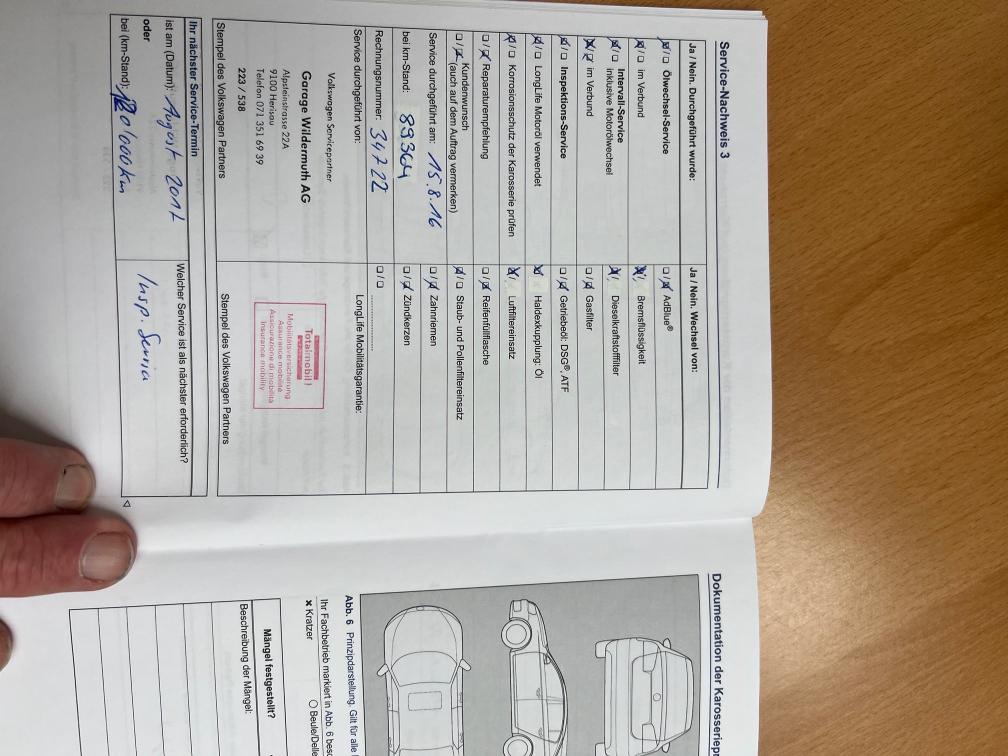 Service-Nachweis 3
Ja / Nein. Durchgeführt wurde:
☒/☐ Ölwechsel-Service
☒/☐ im Verbund
☒/☐ Intervall-Service
inklusive Motorölwechsel
☒/☒ im Verbund
☒/☐ Inspektions-Service
☒/☐ LongLife Motoröl verwendet
☒/☐ Korrosionsschutz der Karosserie prüfen
☐/☒ Reparaturempfehlung
☐/☒ Kundenwunsch
(auch auf dem Auftrag vermerken)
Service durchgeführt am: 15.8.16
bei km-Stand: 89364
Rechnungsnummer: 34722
Service durchgeführt von:
Volkswagen Servicepartner
Garage Wildermuth AG
Alpsteinstrasse 22A
9100 Herisau
Telefon 071 351 69 39
223 / 538
Stempel des Volkswagen Partners
Ja / Nein. Wechsel von:
☐/☒ AdBlue®
☒/ Bremsflüssigkeit
☒/ Dieselkraftstofffilter
☐/☒ Gasfilter
☐/☒ Getriebeöl: DSG®, ATF
☒ Haldexkupplung: Öl
☒/ Luftfiltereinsatz
☐/☒ Reifenfüllflasche
☒/☐ Staub- und Pollenfiltereinsatz
☐/☒ Zahnriemen
☐/☒ Zündkerzen
☐/☐ ....................
LongLife Mobilitätsgarantie:
Totalmobil!
Mobilitätsversicherung
Assurance mobilité
Assicurazione di mobilità
Insurance mobility
Stempel des Volkswagen Partners
Ihr nächster Service-Termin
ist am (Datum): August 2017
oder
bei (km-Stand): 120'000 km
Welcher Service ist als nächster erforderlich?
Insp. Service
Dokumentation der Karosseriep
Abb. 6 Prinzipdarstellung. Gilt für alle
Ihr Fachbetrieb markiert in Abb. 6 besc
× Kratzer
○ Beule/Delle
Mängel festgestellt?
Beschreibung der Mängel: